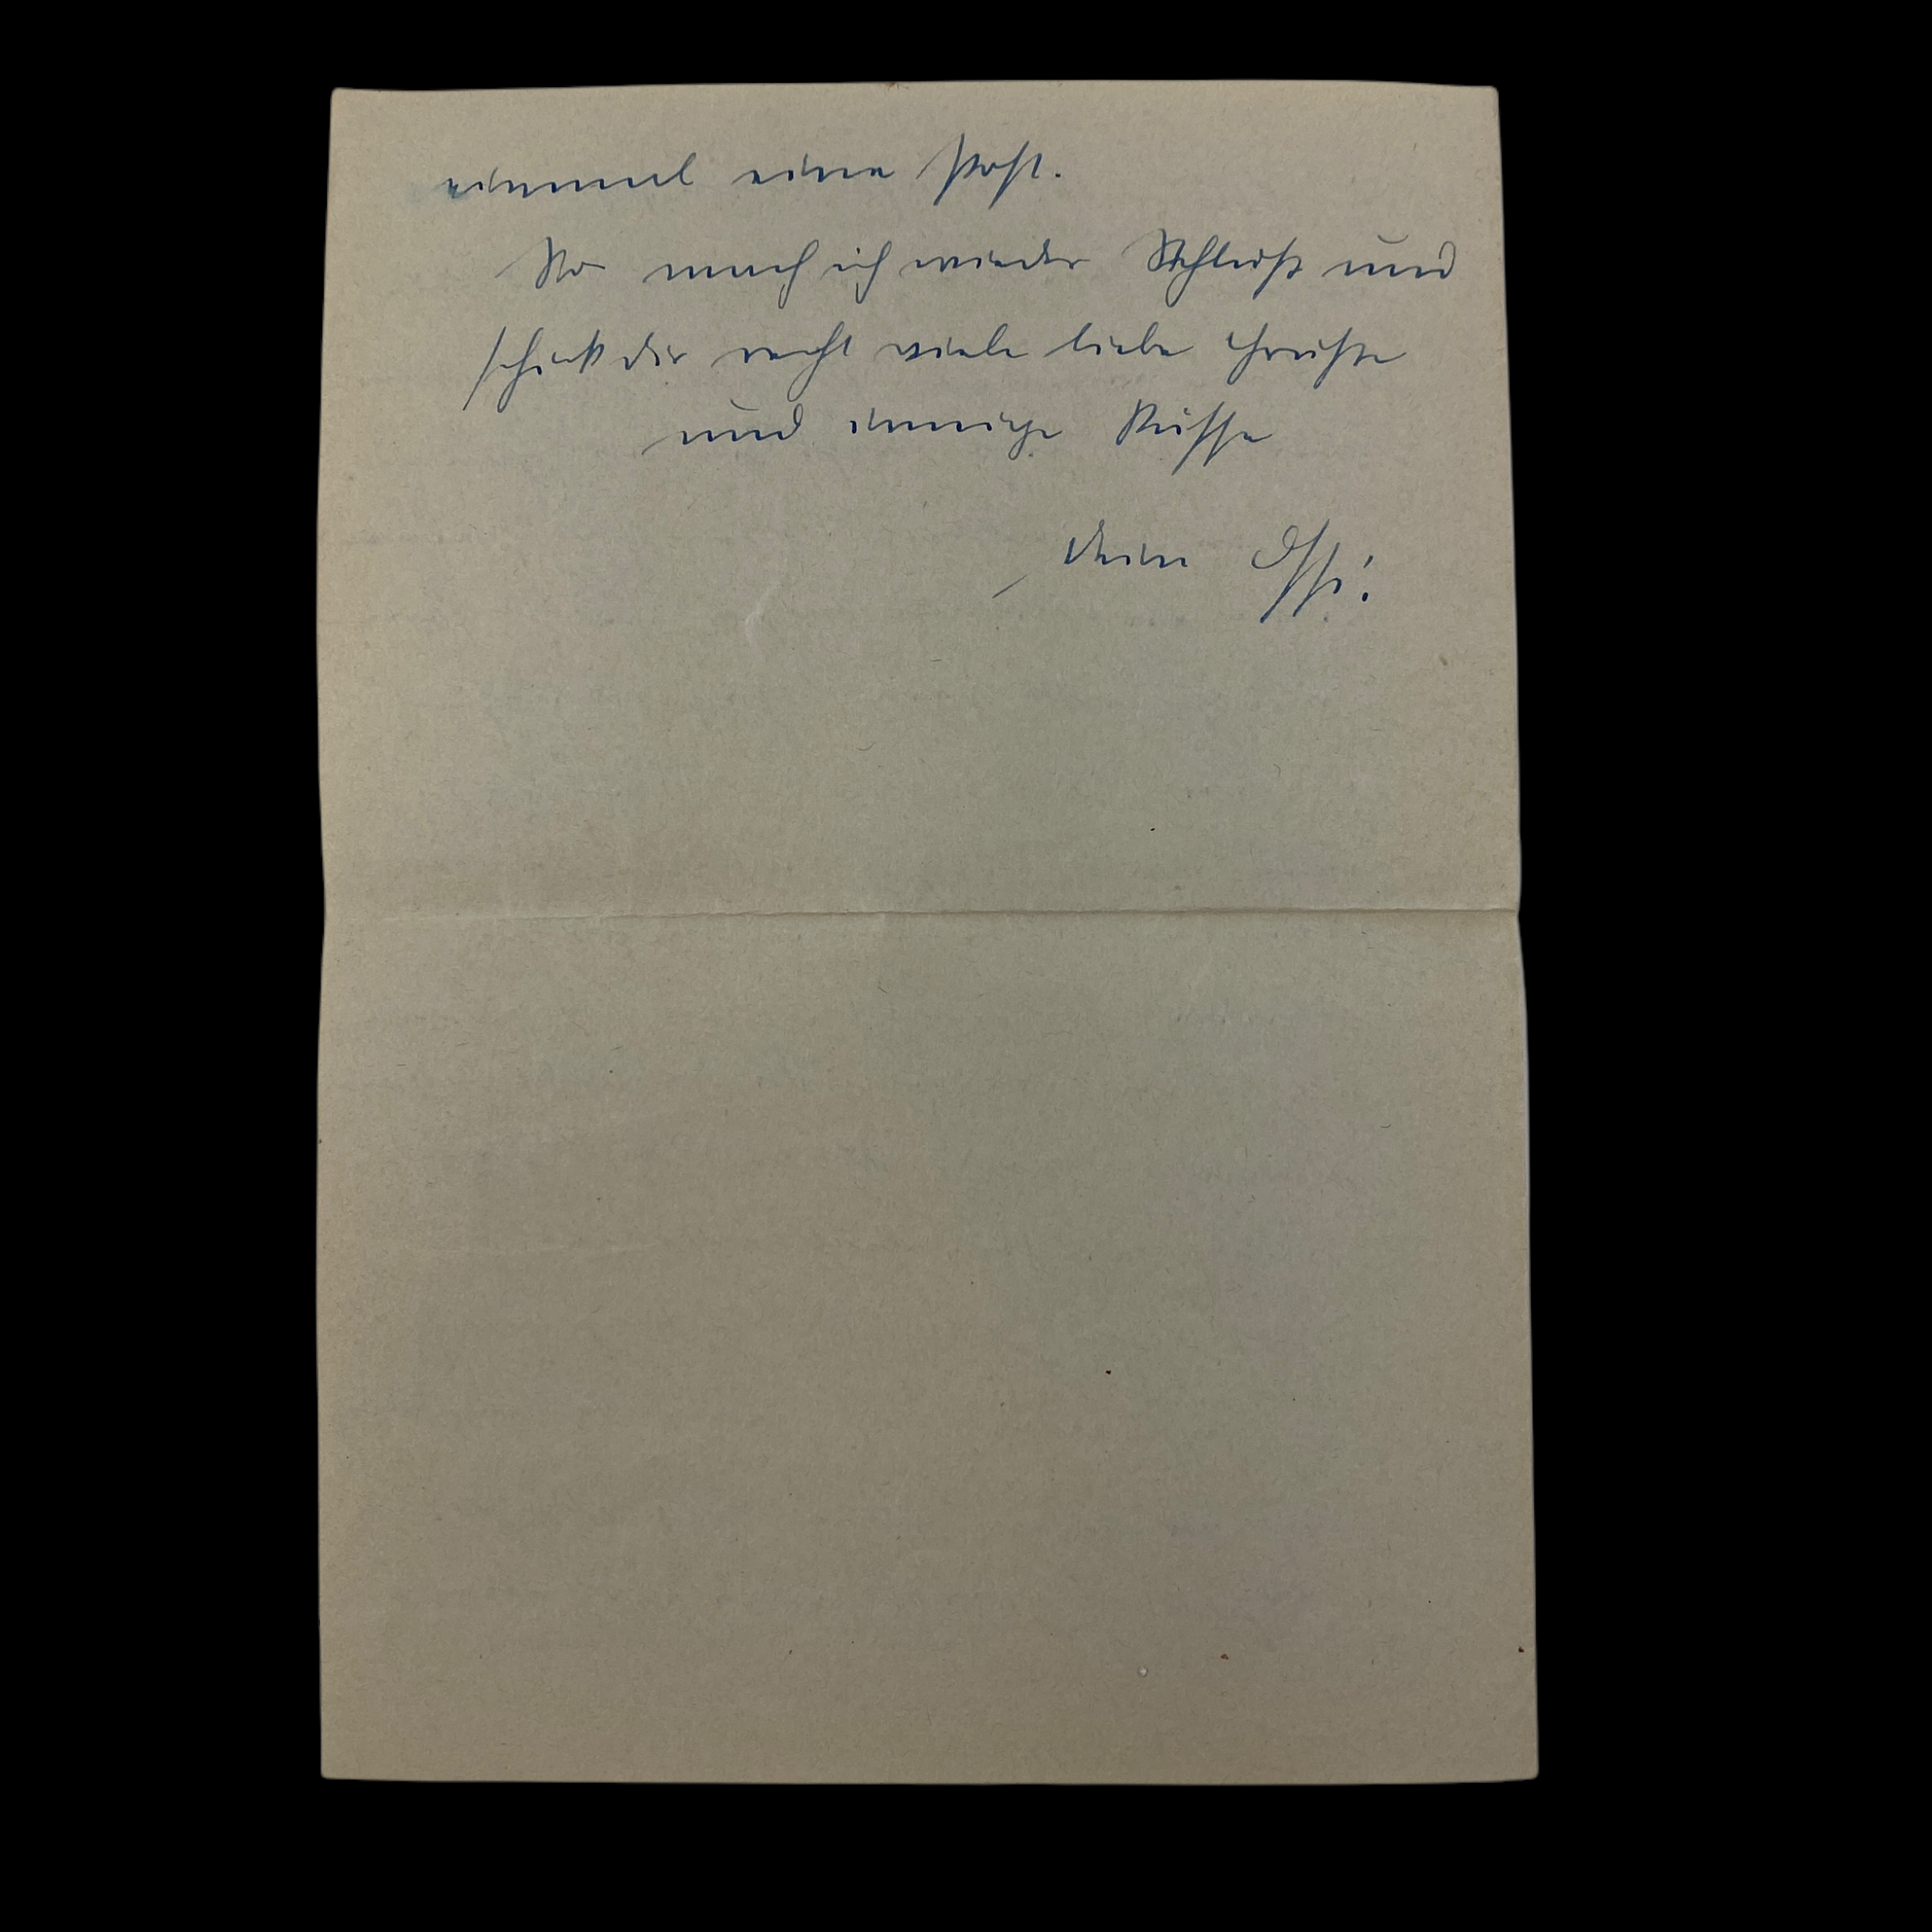 einmal eine Post.
So mach ich wieder Schluß und
schick dir recht viele liebe Grüße
und innige Küsse
dein Ossi!